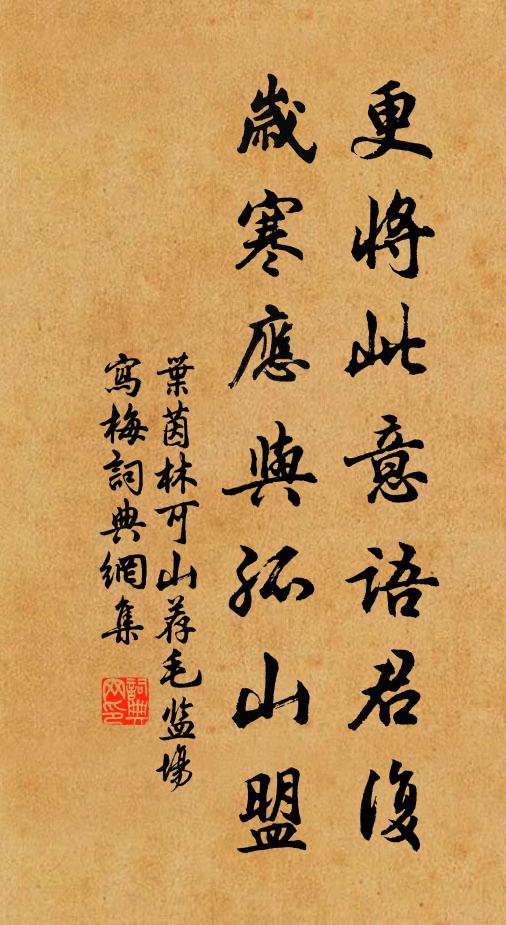 更將此意語君復
歲寒應與孤山盟
葉茵林可山荐毛监場
寫梅詞典網集
詞典網印